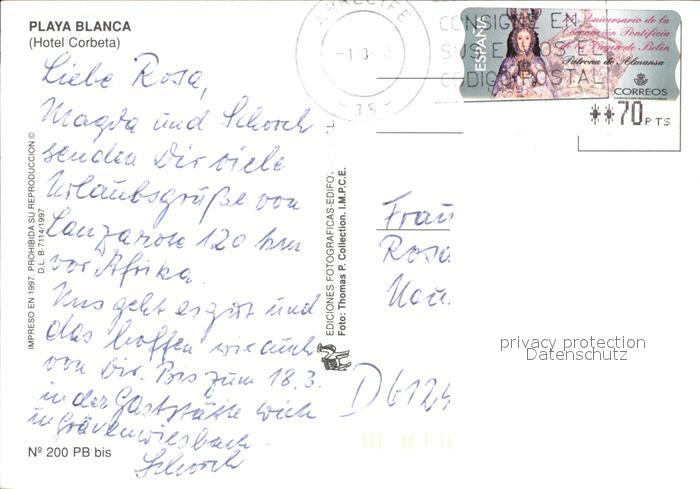 PLAYA BLANCA
(Hotel Corbeta)
Liebe Rosa,
Magda und Schorch
senden Dir viele
Urlaubsgrüße von
Lanzarote 120 km
vor Afrika.
Uns geht es gut und
das hoffen wir auch
von Dir. Bis zum 18.3.
in der Gaststätte
in Grävenwiesbach
Schorch
Nº 200 PB bis
IMPRESO EN 1997. PROHIBIDA SU REPRODUCCION ©
D.L. B-7114/1997
EDICIONES FOTOGRAFICAS-EDIFO
Foto: Thomas P. Collection. I.M.P.C.E.
ARRECIFE
35
CONSIGNE EN
SUS ENVIOS EL
CODIGO POSTAL
ESPAÑA
Aniversario de la
Coronación Pontificia
de la Virgen de Belén
Patrona de Almansa
CORREOS
**70 PTS
Frau
Rosa
D 6124
privacy protection
Datenschutz